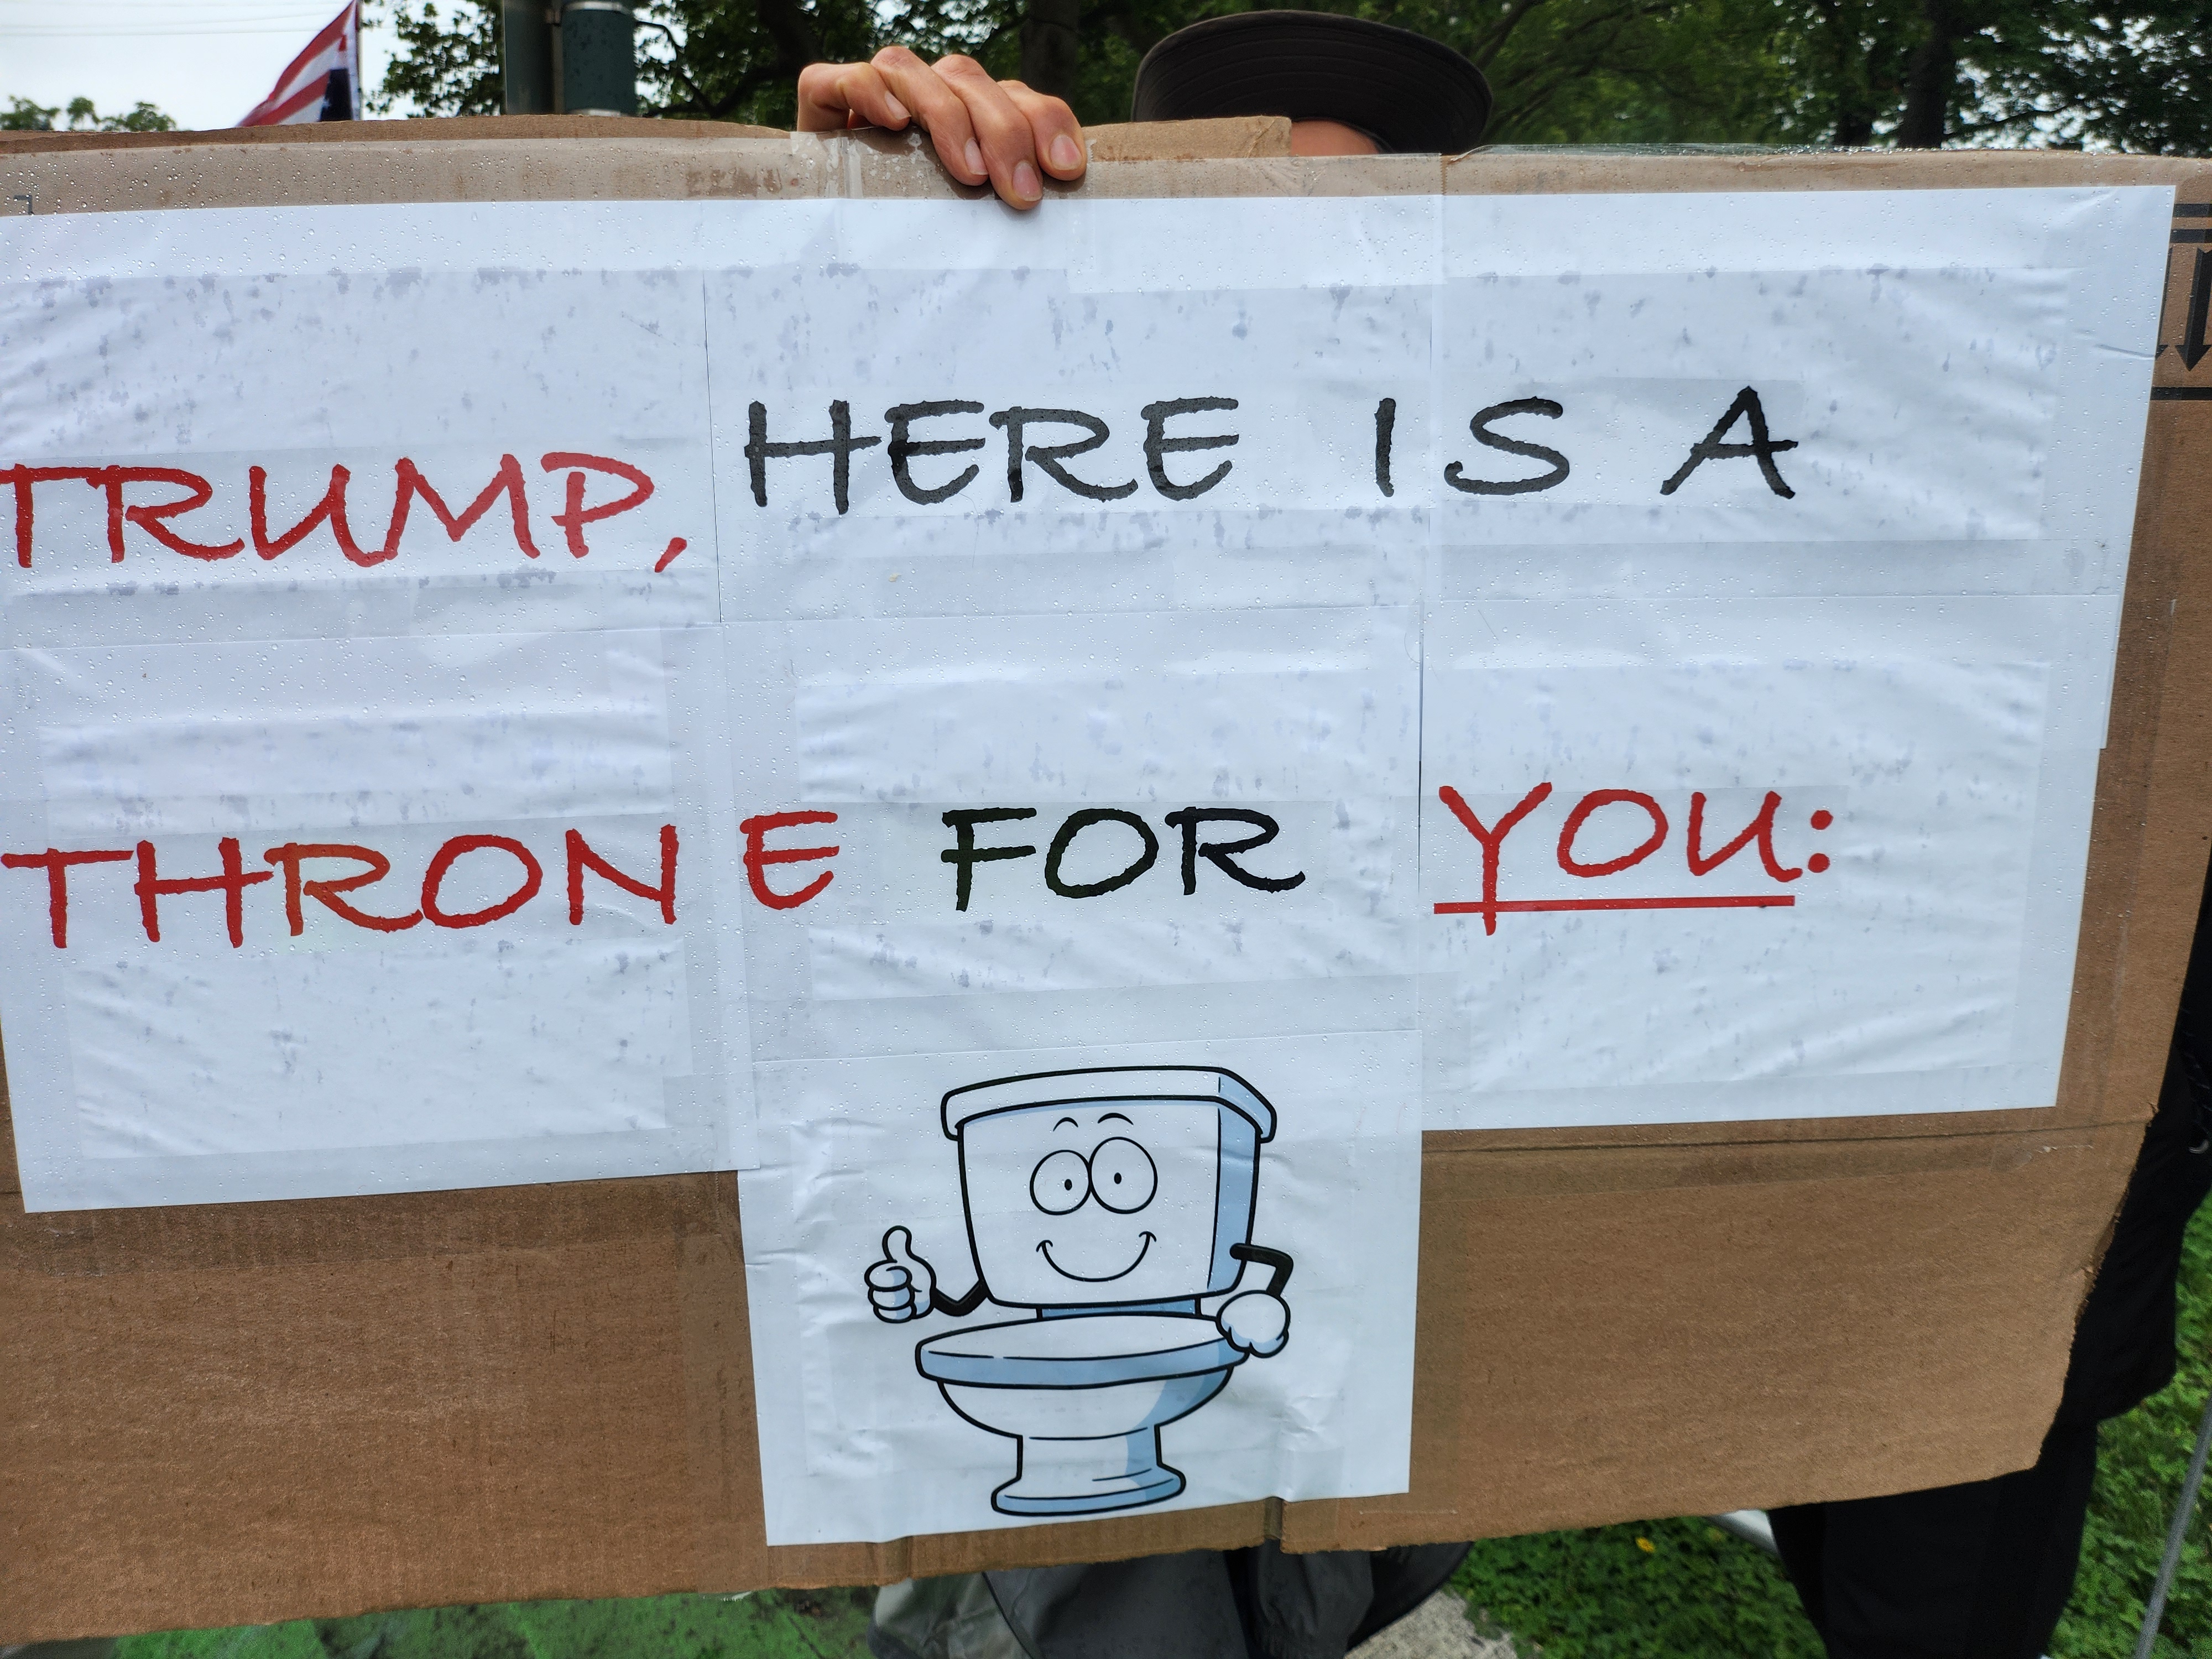 TRUMP, HERE IS A
THRONE FOR YOU: